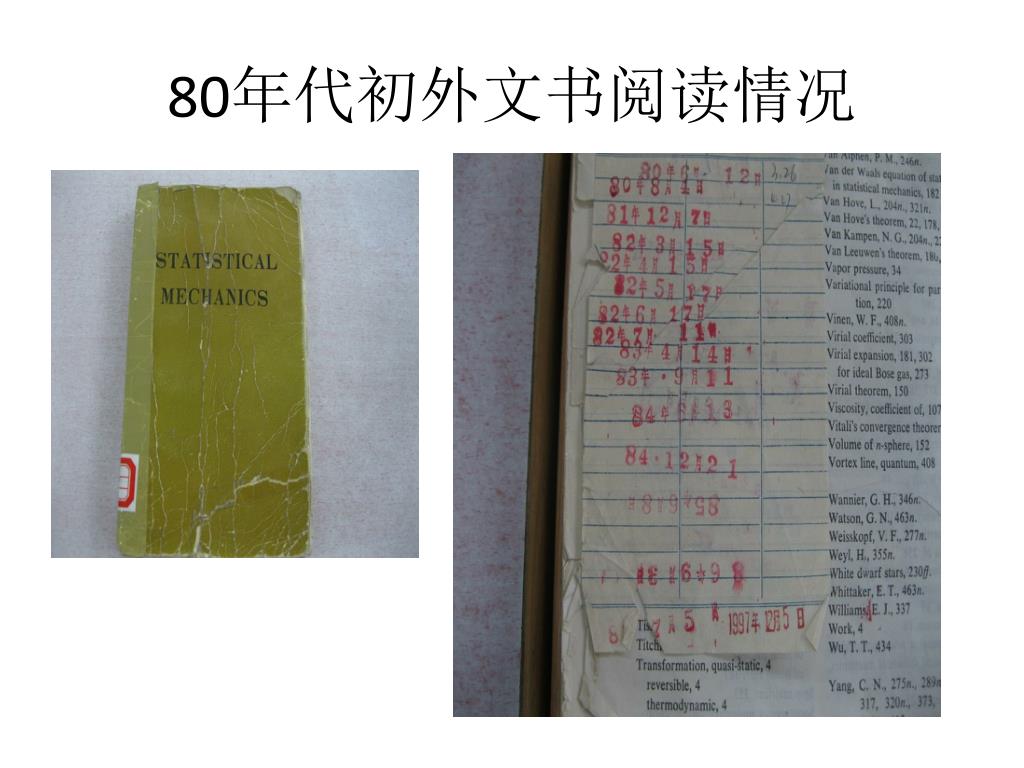 80年代初外文书阅读情况
STATISTICAL
MECHANICS
80年6月12日
3.26
80年8月4日
81年12月7日
82年3月15日
82年4月15日
82年5月17日
82年6月17日
82年7月11
83年4月14日
83年·9月11
84年6月13
84·12月21
7月5
1997年12月5日
Van Alphen, P. M., 246n.
Van der Waals equation of
in statistical mechanics, 182
Van Hove, L., 204n., 321n.
Van Hove's theorem, 22, 178,
Van Kampen, N. G., 204n.,
Van Leeuwen's theorem,
Vapor pressure, 34
Variational principle for
tion, 220
Vinen, W. F., 408n.
Virial coefficient, 303
Virial expansion, 181, 302
for ideal Bose gas, 273
Virial theorem, 150
Viscosity, coefficient of, 107
Vitali's convergence
Volume of n-sphere, 152
Vortex line, quantum, 408
Wannier, G. H., 346n.
Watson, G. N., 463n.
Weisskopf, V. F., 277n.
Weyl, H., 355n.
White dwarf stars, 230ff.
Whittaker, E. T., 463n.
Williams, E. J., 337
Work, 4
Wu, T. T., 434
Yang, C. N., 275n., 289n
317, 320n., 373,
Transformation, quasi-static, 4
reversible, 4
thermodynamic, 4